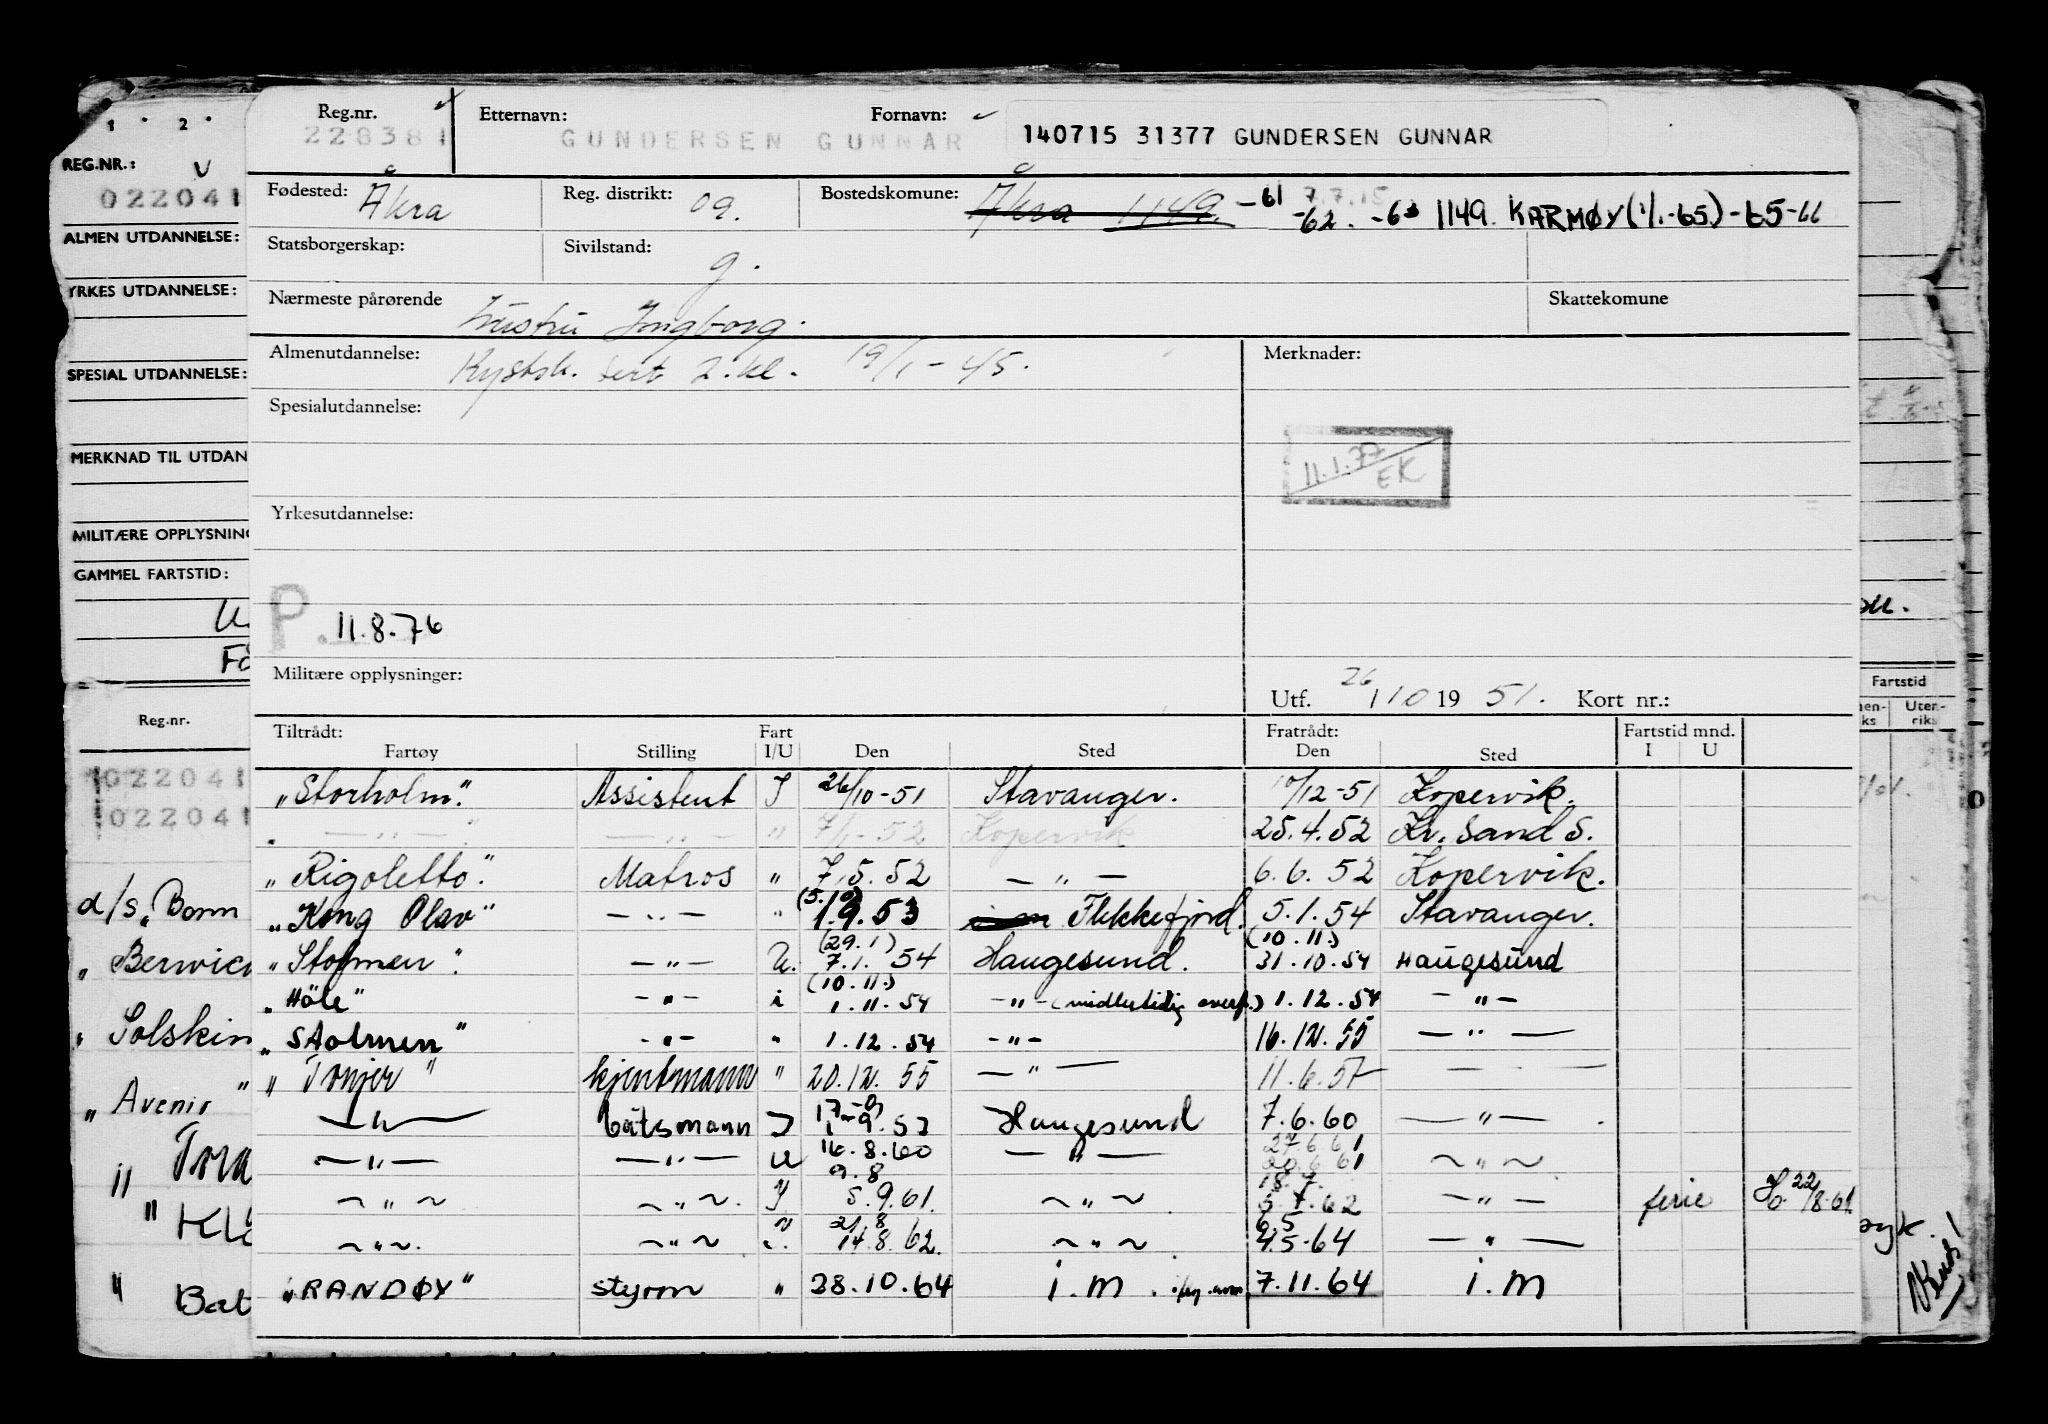 Reg.nr. Etternavn: Fornavn: 140715 31377 GUNDERSEN GUNNAR
228381 GUNDERSEN GUNNAR
Fødested: Åkra Reg. distrikt: 09. Bostedskomune: Åkra 1149. -61 7.7.15 -62. -63 1149. KARMØY (1/1-65) -65-66
Statsborgerskap: Sivilstand: g.
Nærmeste pårørende Hustru Ingborg. Skattekomune
Almenutdannelse: Kystsk. sert 2. kl. 19/1-45. Merknader:
Spesialutdannelse:
11.1.77 EK
Yrkesutdannelse:
P. 11.8.76
Militære opplysninger:
Utf. 26/10 19 51. Kort nr.:
Tiltrådt: Fart Fratrådt: Fartstid mnd.
Fartøy Stilling I/U Den Sted Den Sted I U
"Storholm". Assistent I 26/10-51 Stavanger. 10/12-51 Kopervik.
— " — — " — " 7/1-52 Kopervik 25.4.52 Kr. Sand S.
"Rigoletto". Matros " 7.5.52 — " — 6.6.52 Kopervik.
"Kong Olav" — " — " 1.9.53 Flekkefjord. 5.1.54 Stavanger.
(29.1) (10.11.)
"Stolmen". — " — U. 7.1.54 Haugesund. 31.10.54 Haugesund
(10.11.)
"Höle" — " — i 1.11.54 — " — (midlertidig overf.) 1.12.54 — " —
"Stolmen" — " — " 1.12.54 — " — 16.12.55 — " —
"Tonjer" kjentmann " 20.12.55 — " — 11.6.57 — —
— " — båtsmann I 7.6.60 — " —
Haugesund
— " — — " — U 16.8.60 — " — 27.6.61 ~ " ~
9.8 18.7.
~ " ~ ~ " ~. I 5.9.61. ~ " ~ 5.7.62 — " — ferie 22/8.61
21.8 6.5
~ " ~. ~ " ~ 14.8.62. ~ " ~ 4.5-64 — " —
"RANDØY" styrm " 28.10.64 i.M. 7.11.64 i.M
1 2
REG.NR.: V
022041
ALMEN UTDANNELSE:
YRKES UTDANNELSE:
SPESIAL UTDANNELSE:
MERKNAD TIL UTDAN
MILITÆRE OPPLYSNING
GAMMEL FARTSTID:
Reg.nr.
022041
022041
d/s "Bomm
" Berwick
" Solskin
" Avenir "
" Kl
" Bat
Fartstid
Uten-
riks